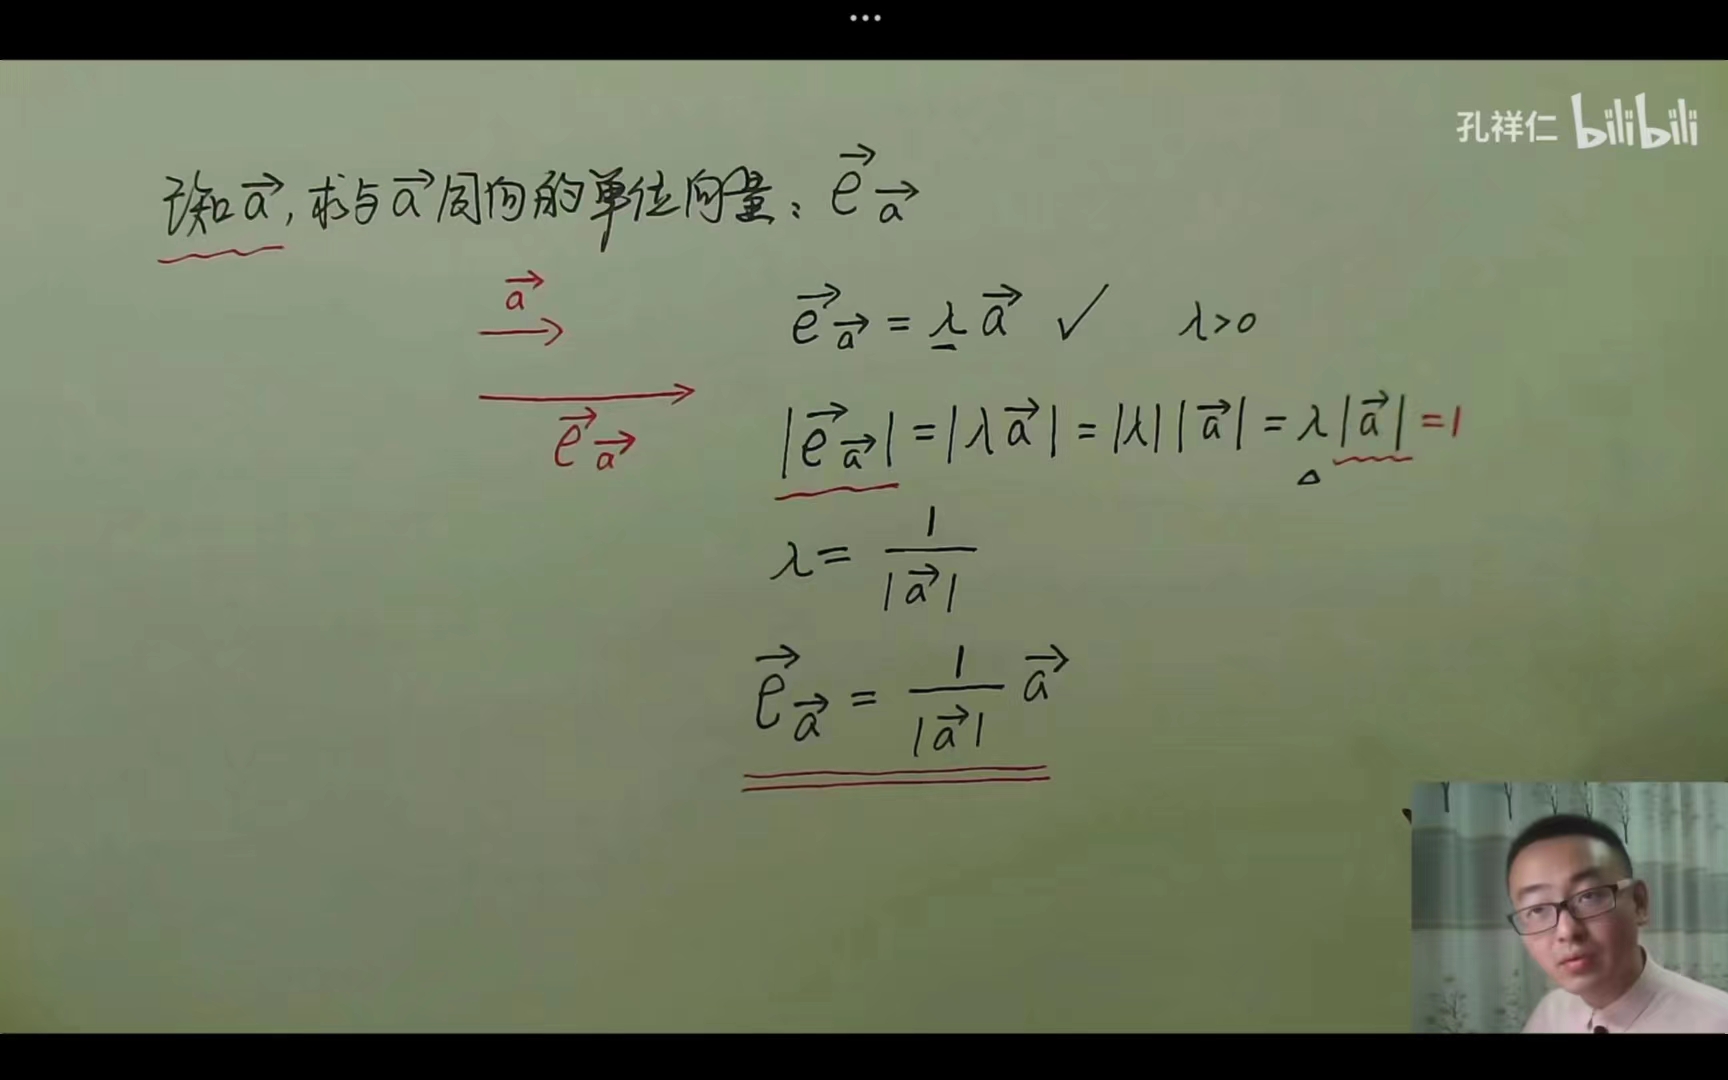 ...
孔祥仁 bilibili
已知a⃗, 求与a⃗同向的单位向量: e⃗_a⃗
a⃗
e⃗_a⃗ = λa⃗ ✓ λ>0
e⃗_a⃗
|e⃗_a⃗| = |λa⃗| = |λ||a⃗| = λ|a⃗| = 1
λ = 1/|a⃗|
e⃗_a⃗ = 1/|a⃗| a⃗